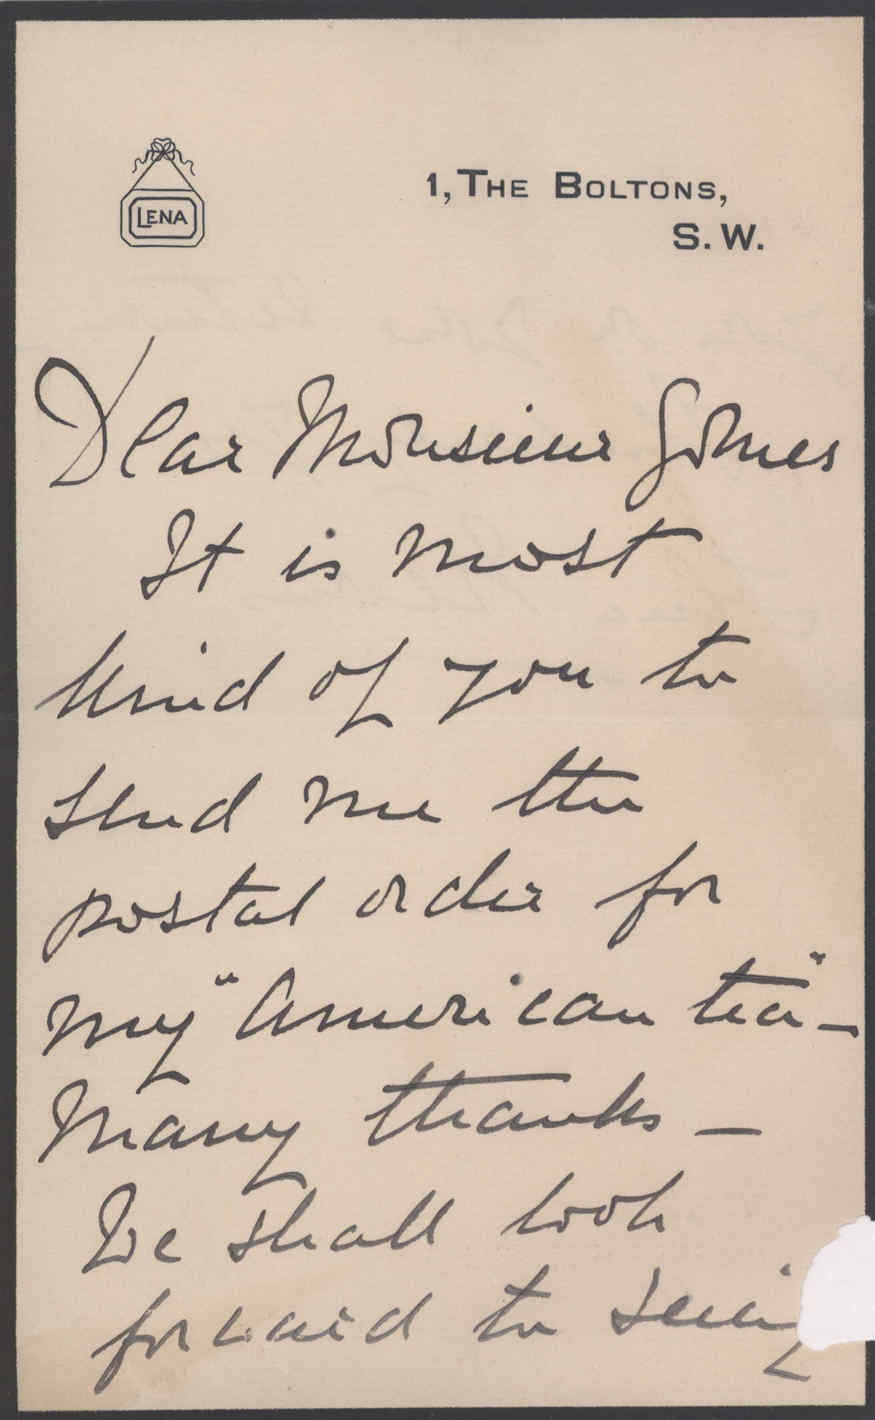 LENA
1, THE BOLTONS,
S.W.
Dear Monsieur Gomes
It is most
kind of you to
send me the
postal order for
my "American tea" —
Many thanks —
We shall look
forward to seeing